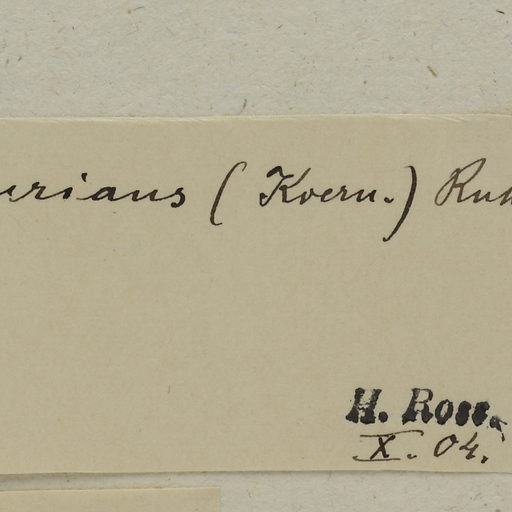 urians (Koern.) Ruh
H. Ross.
X. 04.